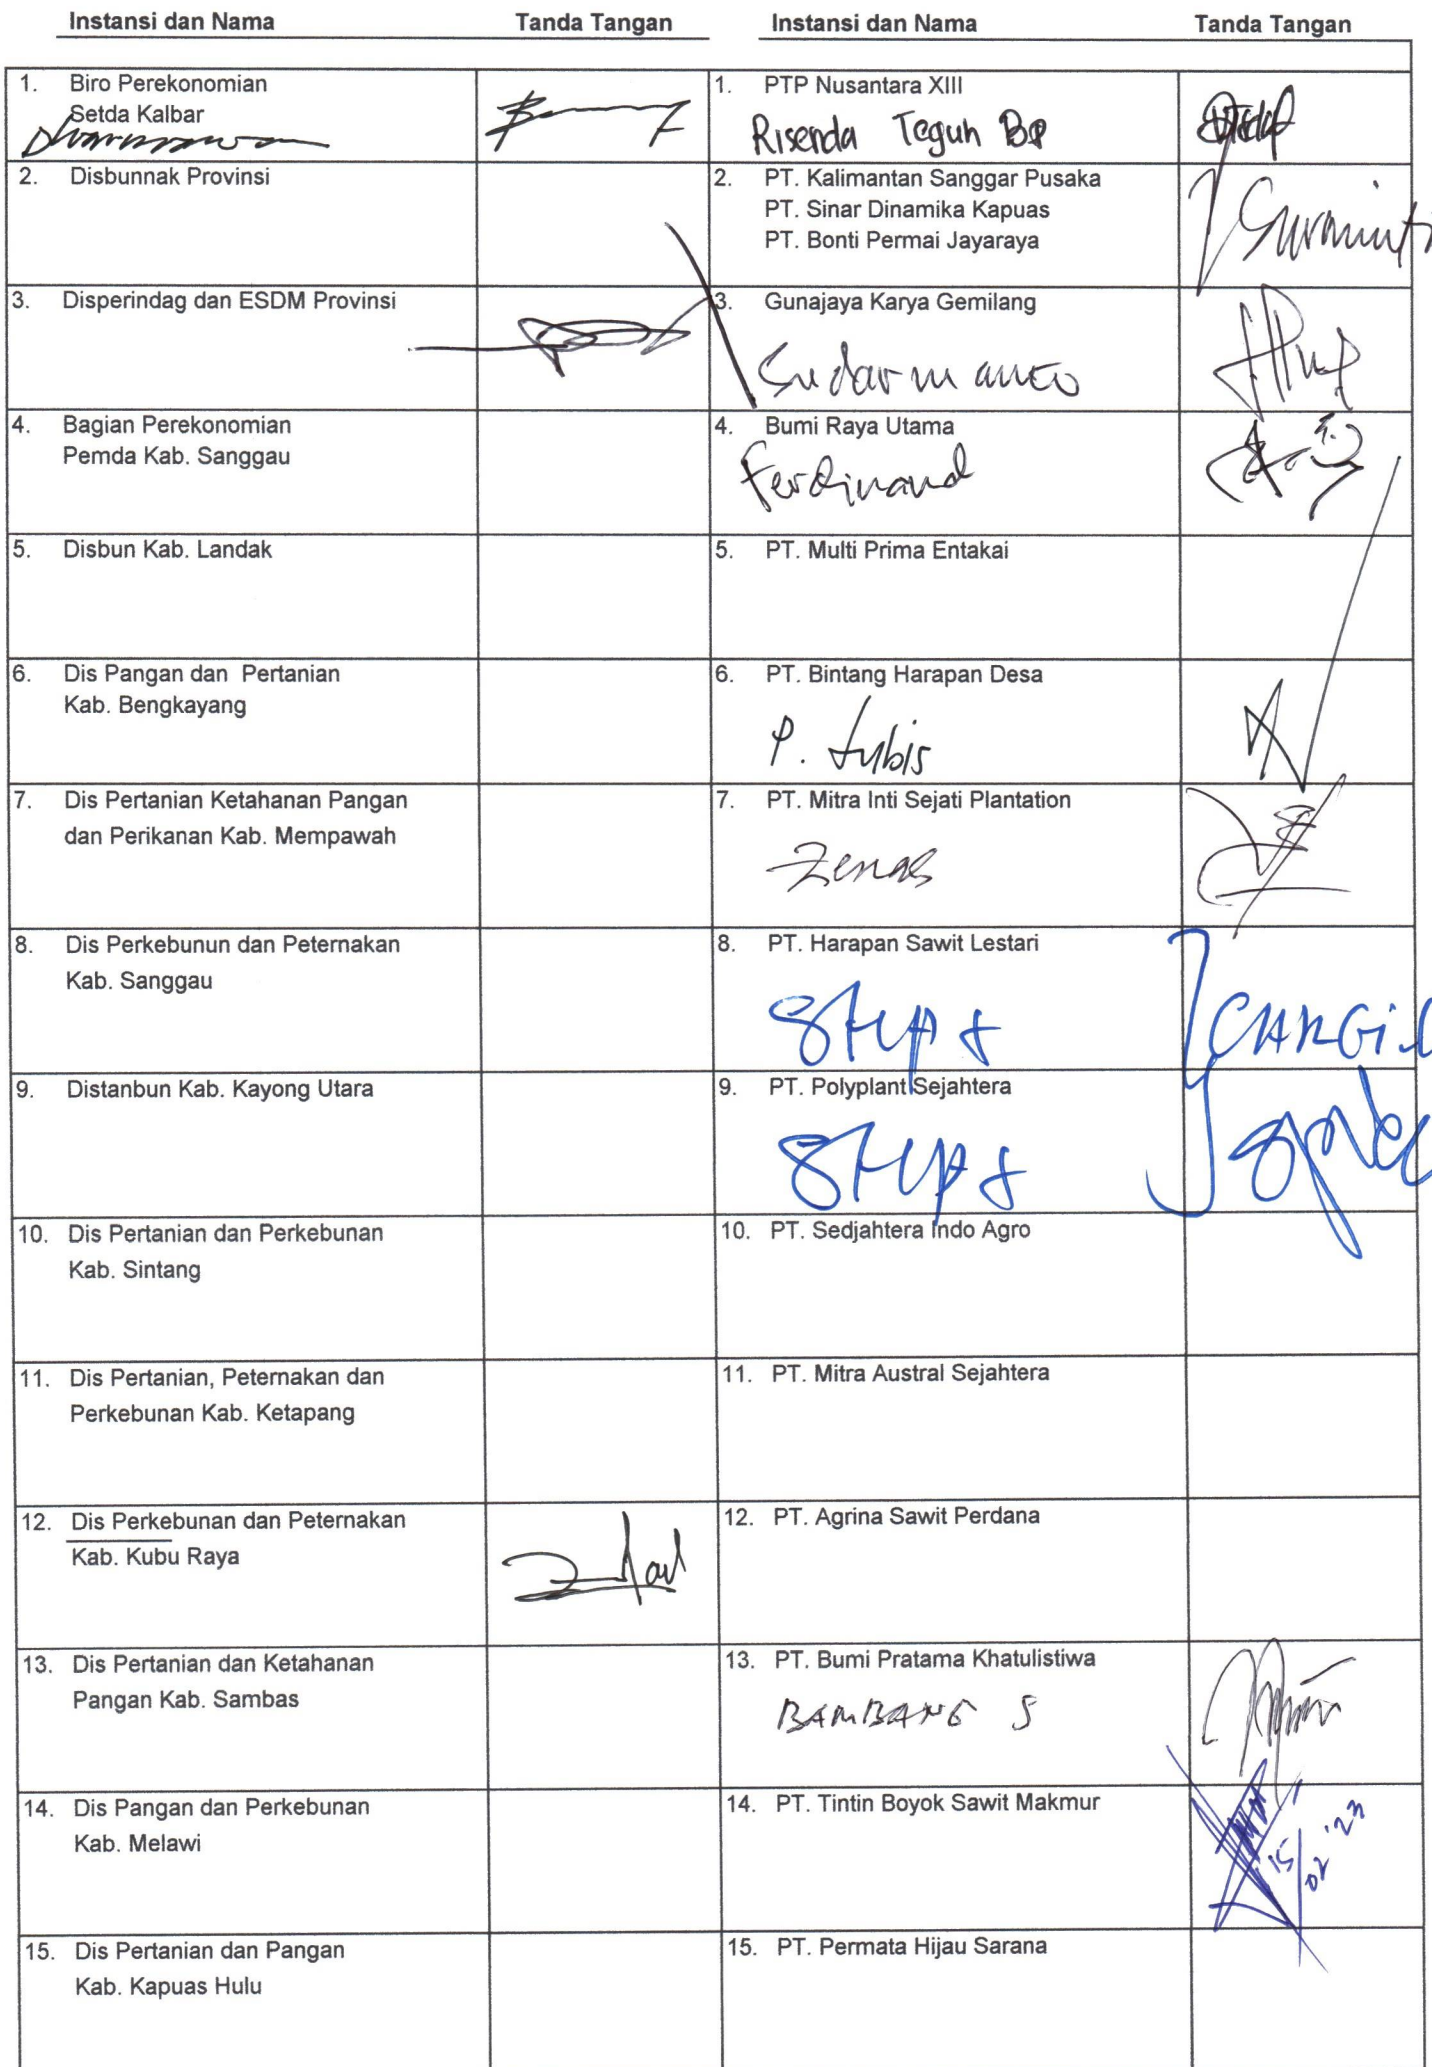 Instansi dan Nama Tanda Tangan Instansi dan Nama Tanda Tangan
1. Biro Perekonomian
Setda Kalbar
1. PTP Nusantara XIII
Risenda Teguh BP
2. Disbunnak Provinsi
2. PT. Kalimantan Sanggar Pusaka
PT. Sinar Dinamika Kapuas
PT. Bonti Permai Jayaraya
3. Disperindag dan ESDM Provinsi
3. Gunajaya Karya Gemilang
Sudarmanto
4. Bagian Perekonomian
Pemda Kab. Sanggau
4. Bumi Raya Utama
Ferdinand
5. Disbun Kab. Landak
5. PT. Multi Prima Entakai
6. Dis Pangan dan Pertanian
Kab. Bengkayang
6. PT. Bintang Harapan Desa
P. Lubis
7. Dis Pertanian Ketahanan Pangan
dan Perikanan Kab. Mempawah
7. PT. Mitra Inti Sejati Plantation
Zenas
8. Dis Perkebunun dan Peternakan
Kab. Sanggau
8. PT. Harapan Sawit Lestari
9. Distanbun Kab. Kayong Utara
9. PT. Polyplant Sejahtera
10. Dis Pertanian dan Perkebunan
Kab. Sintang
10. PT. Sedjahtera Indo Agro
11. Dis Pertanian, Peternakan dan
Perkebunan Kab. Ketapang
11. PT. Mitra Austral Sejahtera
12. Dis Perkebunan dan Peternakan
Kab. Kubu Raya
12. PT. Agrina Sawit Perdana
13. Dis Pertanian dan Ketahanan
Pangan Kab. Sambas
13. PT. Bumi Pratama Khatulistiwa
BAMBANG S
14. Dis Pangan dan Perkebunan
Kab. Melawi
14. PT. Tintin Boyok Sawit Makmur
15/02 '23
15. Dis Pertanian dan Pangan
Kab. Kapuas Hulu
15. PT. Permata Hijau Sarana